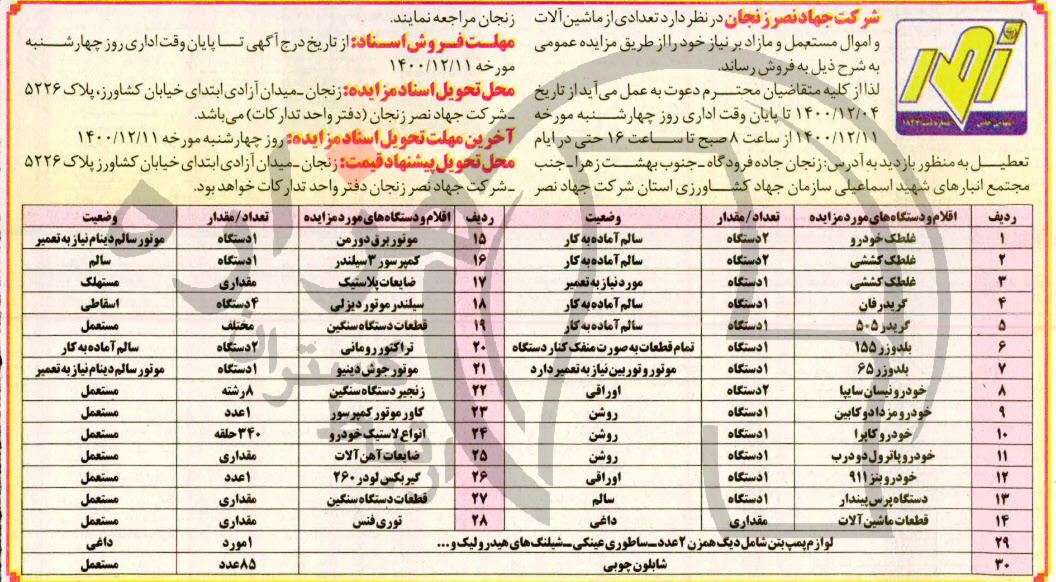 شرکت جهاد نصر زنجان در نظر دارد تعدادی از ماشین آلات
و اموال مستعمل و مازاد بر نیاز خود را از طریق مزایده عمومی
به شرح ذیل به فروش رساند.
لذا از کلیه متقاضیان محترم دعوت به عمل می آید از تاریخ
۱۴۰۰/۱۲/۰۴ تا پایان وقت اداری روز چهارشنبه مورخه
۱۴۰۰/۱۲/۱۱ از ساعت ۸ صبح تا ساعت ۱۶ حتی در ایام
تعطیل به منظور بازدید به آدرس: زنجان جاده فرودگاه ـ جنوب بهشت زهرا ـ جنب
مجتمع انبارهای شهید اسماعیلی سازمان جهاد کشاورزی استان شرکت جهاد نصر
زنجان مراجعه نمایند.
مهلت فروش اسناد: از تاریخ درج آگهی تا پایان وقت اداری روز چهارشنبه
مورخه ۱۴۰۰/۱۲/۱۱
محل تحویل اسناد مزایده: زنجان ـ میدان آزادی ابتدای خیابان کشاورز، پلاک ۵۲۲۶
ـ شرکت جهاد نصر زنجان (دفتر واحد تدارکات) می باشد.
آخرین مهلت تحویل اسناد مزایده: روز چهارشنبه مورخه ۱۴۰۰/۱۲/۱۱
محل تحویل پیشنهاد قیمت: زنجان ـ میدان آزادی ابتدای خیابان کشاورز پلاک ۵۲۲۶
ـ شرکت جهاد نصر زنجان دفتر واحد تدارکات خواهد بود.
ردیف اقلام و دستگاه های مورد مزایده تعداد/مقدار وضعیت ردیف اقلام و دستگاه های مورد مزایده تعداد/مقدار وضعیت
۱ غلطک خودرو ۲دستگاه سالم آماده به کار ۱۵ موتور برق دور من ۱دستگاه موتور سالم دینام نیاز به تعمیر
۲ غلطک کششی ۲دستگاه سالم آماده به کار ۱۶ کمپرسور ۳ سیلندر ۱دستگاه سالم
۳ غلطک کششی ۱دستگاه مورد نیاز به تعمیر ۱۷ ضایعات پلاستیک مقداری مستهلک
۴ گریدر فان ۱دستگاه سالم آماده به کار ۱۸ سیلندر موتور دیزلی ۴دستگاه اسقاطی
۵ گریدر ۵۰۵ ۱دستگاه سالم آماده به کار ۱۹ قطعات دستگاه سنگین مختلف مستعمل
۶ بلدوزر ۱۵۵ ۱دستگاه تمام قطعات به صورت منفک کنار دستگاه ۲۰ تراکتور رومانی ۲دستگاه سالم آماده به کار
۷ بلدوزر ۶۵ ۱دستگاه موتور و توربین نیاز به تعمیر دارد ۲۱ موتور جوش دینیو ۱دستگاه موتور سالم دینام نیاز به تعمیر
۸ خودرو نیسان سایپا ۲دستگاه اوراقی ۲۲ زنجیر دستگاه سنگین ۸رشته مستعمل
۹ خودرو مزدا دو کابین ۱دستگاه روشن ۲۳ کاور موتور کمپرسور ۱عدد مستعمل
۱۰ خودرو کاپرا ۱دستگاه روشن ۲۴ انواع لاستیک خودرو ۳۴۰حلقه مستعمل
۱۱ خودرو پاترول دو درب ۱دستگاه روشن ۲۵ ضایعات آهن آلات مقداری مستعمل
۱۲ خودرو بنز ۹۱۱ ۱دستگاه اوراقی ۲۶ گیربکس لودر ۲۶۰ ۱عدد مستعمل
۱۳ دستگاه پرس پیندار ۱دستگاه سالم ۲۷ قطعات دستگاه سنگین مقداری مستعمل
۱۴ قطعات ماشین آلات مقداری داغی ۲۸ توری فنس مقداری مستعمل
۲۹ لوازم پمپ بتن شامل دیگ همزن ۲عدد ـ ساطوری عینکی ـ شیلنگ های هیدرولیک و... ۱مورد داغی
۳۰ شابلون چوبی ۸۵عدد مستعمل